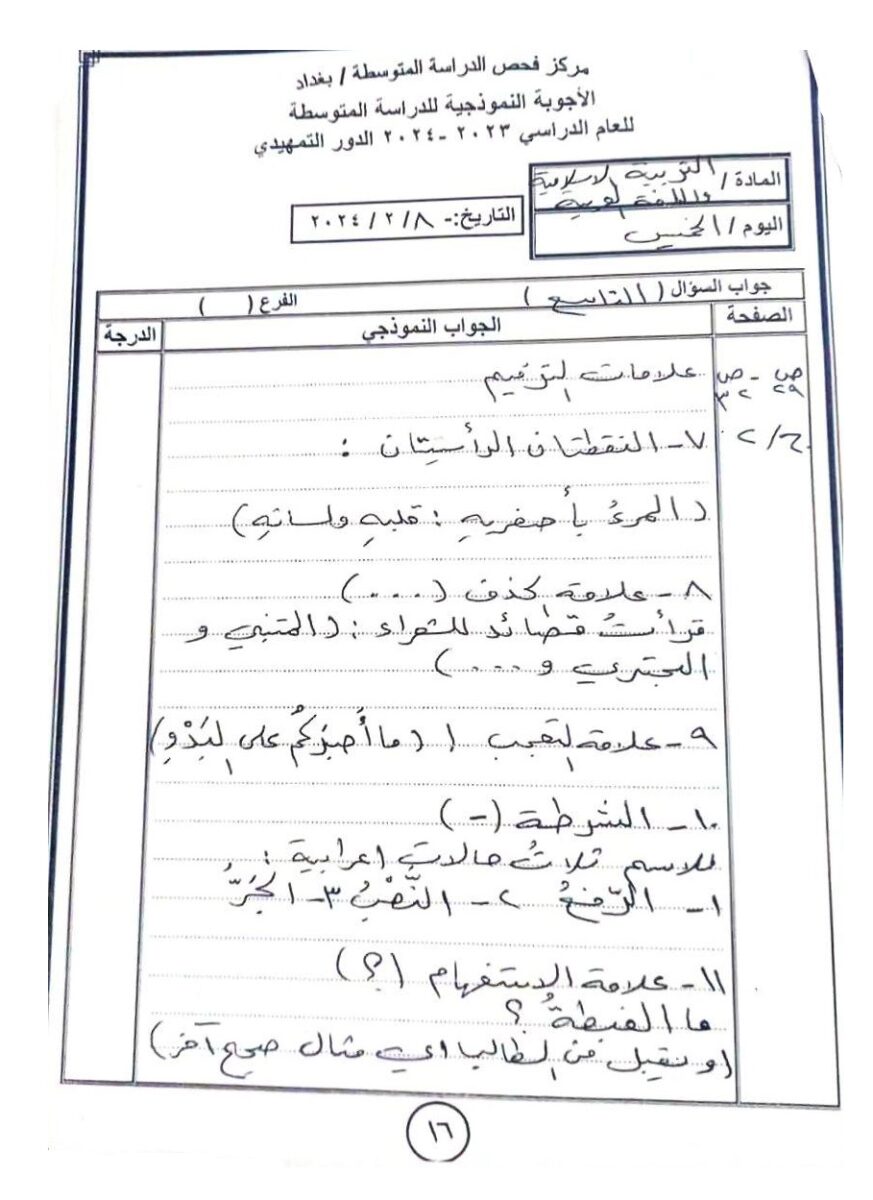 مركز فحص الدراسة المتوسطة / بغداد
الأجوبة النموذجية للدراسة المتوسطة
للعام الدراسي ٢٠٢٣ - ٢٠٢٤ الدور التمهيدي
المادة / التربية الاسلامية
واللغة العربية
اليوم / الخميس
التاريخ:- ٨ / ٢ / ٢٠٢٤
جواب السؤال ( التاسع ) الفرع ( )
الصفحة الجواب النموذجي الدرجة
ص - ص علامات الترقيم
٢٩ ٣٢
ج/٢ ٧- النقطتان الرأسيتان :
( المرءُ بأصغريهِ : قلبهِ ولسانهِ )
٨- علامة الحذف (...)
قرأتُ قصائد للشعراء : ( المتنبي و
البحتري و ... )
٩- علامة التعجب ! ( ما أصبركُم على البَدْوِ ! )
١٠- الشرطة (-)
للاسم ثلاثُ حالاتٍ اعرابية :
١- الرّفعُ ٢- النّصْبُ ٣- الجَرُّ
١١- علامة الاستفهام (؟)
ما الغبطةُ ؟
( و نقبل من الطالب اي مثال صحيح آخر )
١٦